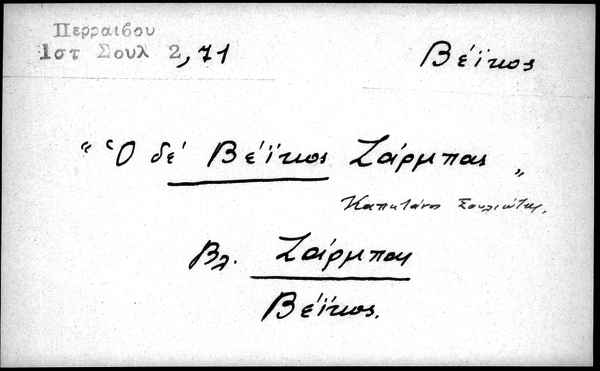 Περραιβου
Ιστ Σουλ 2,71
Βέϊκος
"Ὁ δέ Βέϊκος Ζάρμπας"
Καπετάνος Σουλιώτης.
Βλ. Ζάρμπας
Βέϊκος.